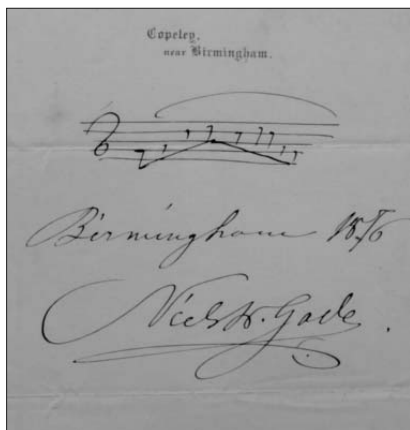 Copeley,
near Birmingham.
Birmingham 1876
Niels W. Gade.